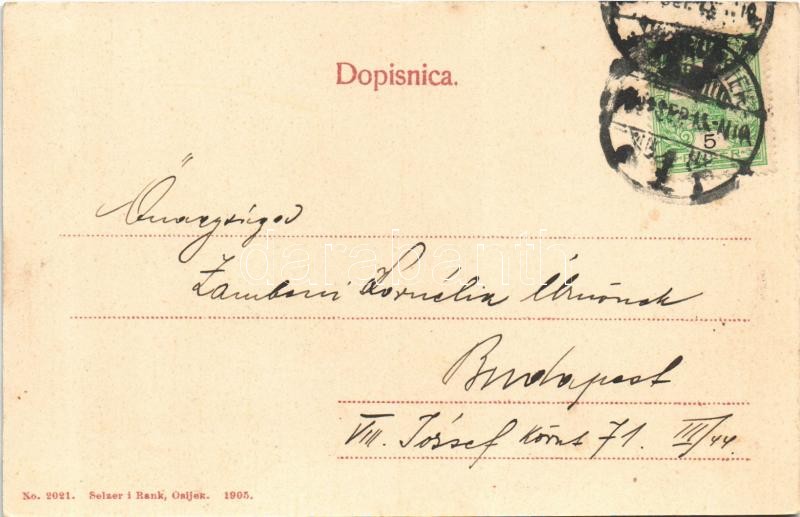 Dopisnica.
5
Zamboni Kornélia Úrnőnek
Budapest
VIII. József körut 71. III/44
darabanth
No. 2021. Selzer i Rank, Osijek. 1905.